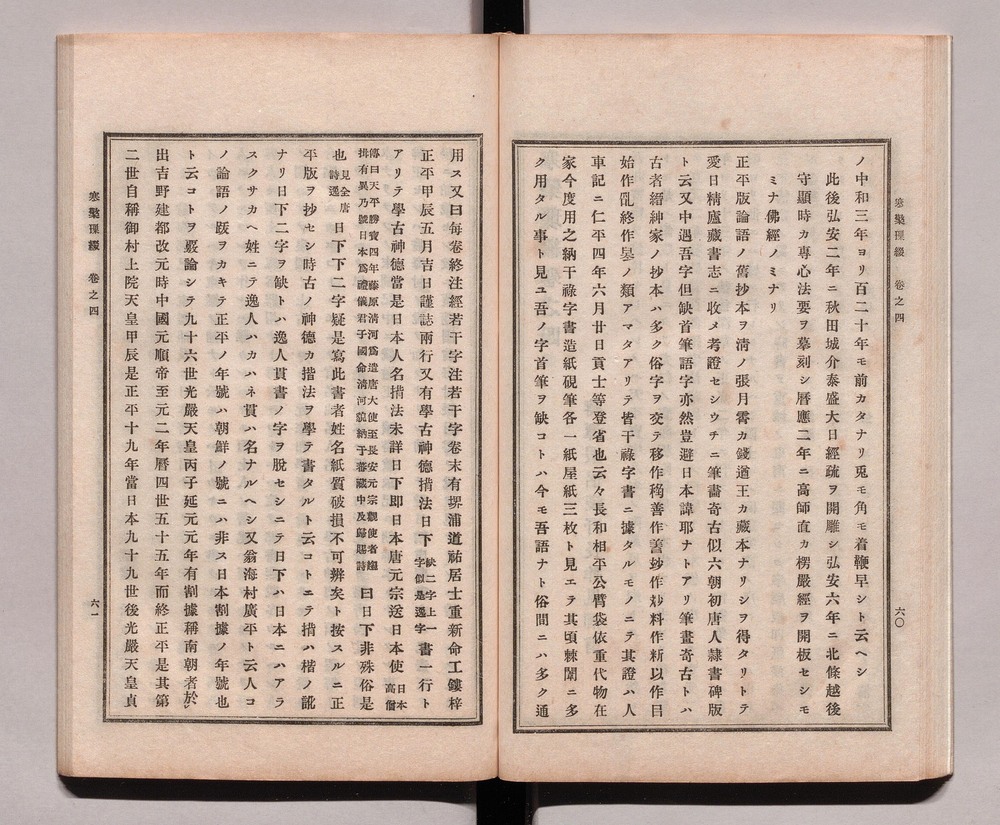 寒檠璅綴　卷之四
六〇
ノ中和三年ヨリ百二十年モ前カタナリ兎モ角モ着鞭早シト云ヘシ
此後弘安二年ニ秋田城介泰盛大日經疏ヲ開雕シ弘安六年ニ北條越後
守顯時カ專心法要ヲ摹刻シ曆應二年ニ高師直カ楞嚴經ヲ開板セシモ
ミナ佛經ノミナリ
正平版論語ノ舊抄本ヲ淸ノ張月霄カ錢遵王カ藏本ナリシヲ得タリトテ
愛日精廬藏書志ニ收メ考證セシウチニ筆畵奇古似六朝初唐人隸書碑版
ト云又中遇吾字但缺首筆語字亦然豈避日本諱耶ナトアリ筆畫奇古トハ
古者縉紳家ノ抄本ハ多ク俗字ヲ交テ移作𥝢善作𠵊妙作玅料作䉼以作㠯
始作乿終作𠔾ノ類アマタアリテ皆干祿字書ニ據タルモノニテ其證ハ人
車記ニ仁平四年六月廿日貢士等登省也云々長和相平公臂袋依重代物在
家今度用之納干祿字書造紙硯筆各一紙屋紙三枚ト見エテ其頃棘闈ニ多
ク用タル事ト見ユ吾ノ字首筆ヲ缺コトハ今モ吾語ナト俗間ニハ多ク通
用ス又曰每卷終注經若干字注若干字卷末有堺浦道祐居士重新命工鏤梓
正平甲辰五月吉日謹誌兩行又有學古神德揩法日下缺二字上一字似是逸字書一行ト
アリテ學古神德當是日本人名揩法未詳日下卽日本唐元宗送日本使日本高僧
傳曰天平勝寶四年藤原淸河爲遣唐大使至長安元宗觀使者趨
揖有異乃號日本爲禮儀君子國命淸河貌納于蕃藏中及歸賜詩曰日下非殊俗是
也見全唐詩逸日下下二字疑是寫此書者姓名紙質破損不可辨矣ト按スルニ正
平版ヲ抄セシ時古ノ神德カ揩法ヲ學テ書タルト云コトニテ揩ハ楷ノ訛
ナリ日下二字ヲ缺トハ逸人貫書ノ字ヲ脫セシニテ日下ハ日本ニハアラ
スクサカヘ姓ニテ逸人ハカハネ貫ハ名ナルヘシ又翁海村廣平ト云人コ
ノ論語ノ跋ヲカキテ正平ノ年號ハ朝鮮ノ號ニハ非ス日本割據ノ年號也
ト云コトヲ嚴論シテ九十六世光嚴天皇丙子延元元年有割據稱南朝者於
出吉野建都改元時中國元順帝至元二年曆四世五十五年而終正平是其第
二世自稱御村上院天皇甲辰是正平十九年當日本九十九世後光嚴天皇貞
寒檠璅綴　卷之四
六一